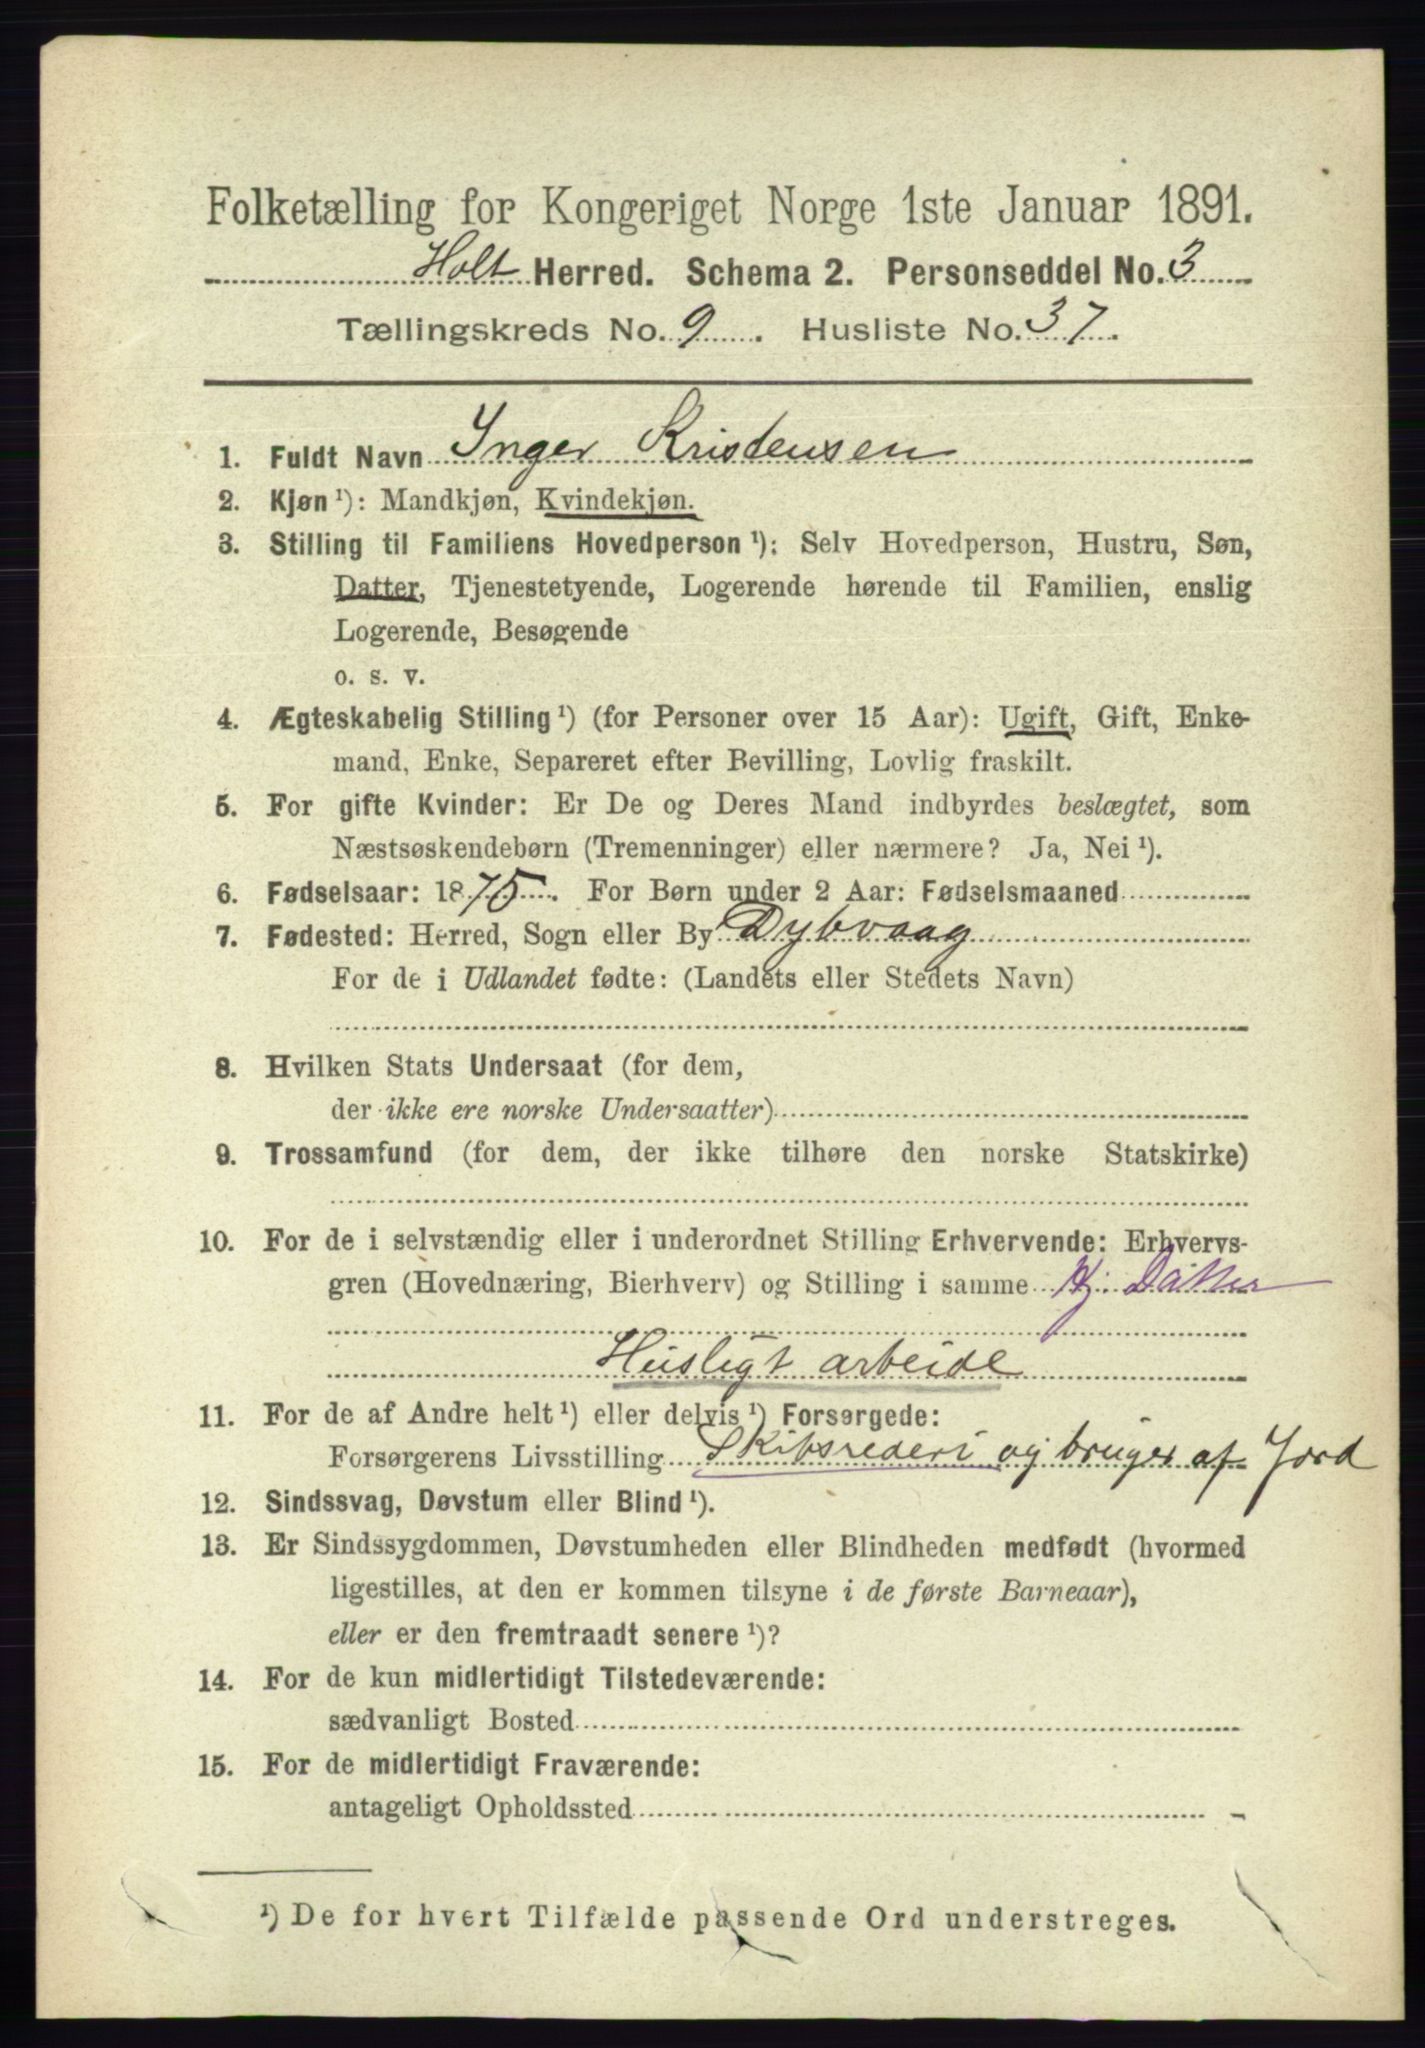 Folketælling for Kongeriget Norge 1ste Januar 1891.
Holt Herred. Schema 2. Personseddel No. 3
Tællingskreds No. 9. Husliste No. 37.
1. Fuldt Navn Inger Kristensen
2. Kjøn ¹): Mandkjøn, Kvindekjøn.
3. Stilling til Familiens Hovedperson ¹): Selv Hovedperson, Hustru, Søn,
Datter, Tjenestetyende, Logerende hørende til Familien, enslig
Logerende, Besøgende
o. s. v.
4. Ægteskabelig Stilling ¹) (for Personer over 15 Aar): Ugift, Gift, Enke-
mand, Enke, Separeret efter Bevilling, Lovlig fraskilt.
5. For gifte Kvinder: Er De og Deres Mand indbyrdes beslægtet, som
Næstsøskendebørn (Tremenninger) eller nærmere? Ja, Nei ¹).
6. Fødselsaar: 1875. For Børn under 2 Aar: Fødselsmaaned
7. Fødested: Herred, Sogn eller By Dybvaag
For de i Udlandet fødte: (Landets eller Stedets Navn)
8. Hvilken Stats Undersaat (for dem,
der ikke ere norske Undersaatter)
9. Trossamfund (for dem, der ikke tilhøre den norske Statskirke)
10. For de i selvstændig eller i underordnet Stilling Erhvervende: Erhvervs-
gren (Hovednæring, Bierhverv) og Stilling i samme Hj. Datter
Husligt arbeide
11. For de af Andre helt ¹) eller delvis ¹) Forsørgede:
Forsørgerens Livsstilling Skibsrederi og bruger af Jord
12. Sindssvag, Døvstum eller Blind ¹).
13. Er Sindssygdommen, Døvstumheden eller Blindheden medfødt (hvormed
ligestilles, at den er kommen tilsyne i de første Barneaar),
eller er den fremtraadt senere ¹)?
14. For de kun midlertidigt Tilstedeværende:
sædvanligt Bosted
15. For de midlertidigt Fraværende:
antageligt Opholdssted
¹) De for hvert Tilfælde passende Ord understreges.